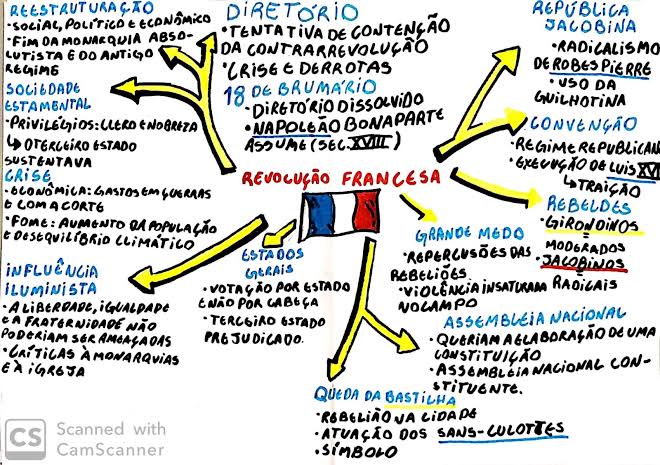 REESTRUTURAÇÃO
•SOCIAL, POLÍTICO E ECONÔMICO
•FIM DA MONARQUIA ABSO-
LUTISTA E DO ANTIGO
REGIME
SOCIEDADE
ESTAMENTAL
•PRIVILÉGIOS: CLERO E NOBREZA
↳ O TERCEIRO ESTADO
SUSTENTAVA
CRISE
•ECONÔMICA: GASTOS EM GUERRAS
E COM A CORTE
•FOME: AUMENTO DA POPULAÇÃO
E DESEQUILÍBRIO CLIMÁTICO
INFLUÊNCIA
ILUMINISTA
•A LIBERDADE, IGUALDADE
E A FRATERNIDADE NÃO
PODERIAM SER AMEAÇADAS
•CRÍTICAS À MONARQUIAS
E À IGREJA
DIRETÓRIO
•TENTATIVA DE CONTENÇÃO
DA CONTRARREVOLUÇÃO
•CRISE E DERROTAS
18 DE BRUMÁRIO
•DIRETÓRIO DISSOLVIDO
•NAPOLEÃO BONAPARTE
ASSUME (SEC. XVIII)
REVOLUÇÃO FRANCESA
ESTADOS
GERAIS
•VOTAÇÃO POR ESTADO
E NÃO POR CABEÇA
•TERCEIRO ESTADO
PREJUDICADO.
QUEDA DA BASTILHA
•REBELIÃO NA CIDADE
•ATUAÇÃO DOS SANS-CULOTTES
•SÍMBOLO
REPÚBLICA
JACOBINA
•RADICALISMO
DE ROBESPIERRE
•USO DA
GUILHOTINA
CONVENÇÃO
•REGIME REPUBLICAN
•EXECUÇÃO DE LUIS XVI
↳ TRAIÇÃO
REBELDES
•GIRONDINOS
=
MODERADOS
•JACOBINOS
=
RADICAIS
GRANDE MEDO
•REPERCUSSÕES DAS
REBELIÕES
•VIOLÊNCIA INSATURADA
NO CAMPO
ASSEMBLEIA NACIONAL
•QUERIAM A ELABORAÇÃO DE UMA
CONSTITUIÇÃO
•ASSEMBLEIA NACIONAL CON-
STITUENTE.
CS Scanned with
CamScanner